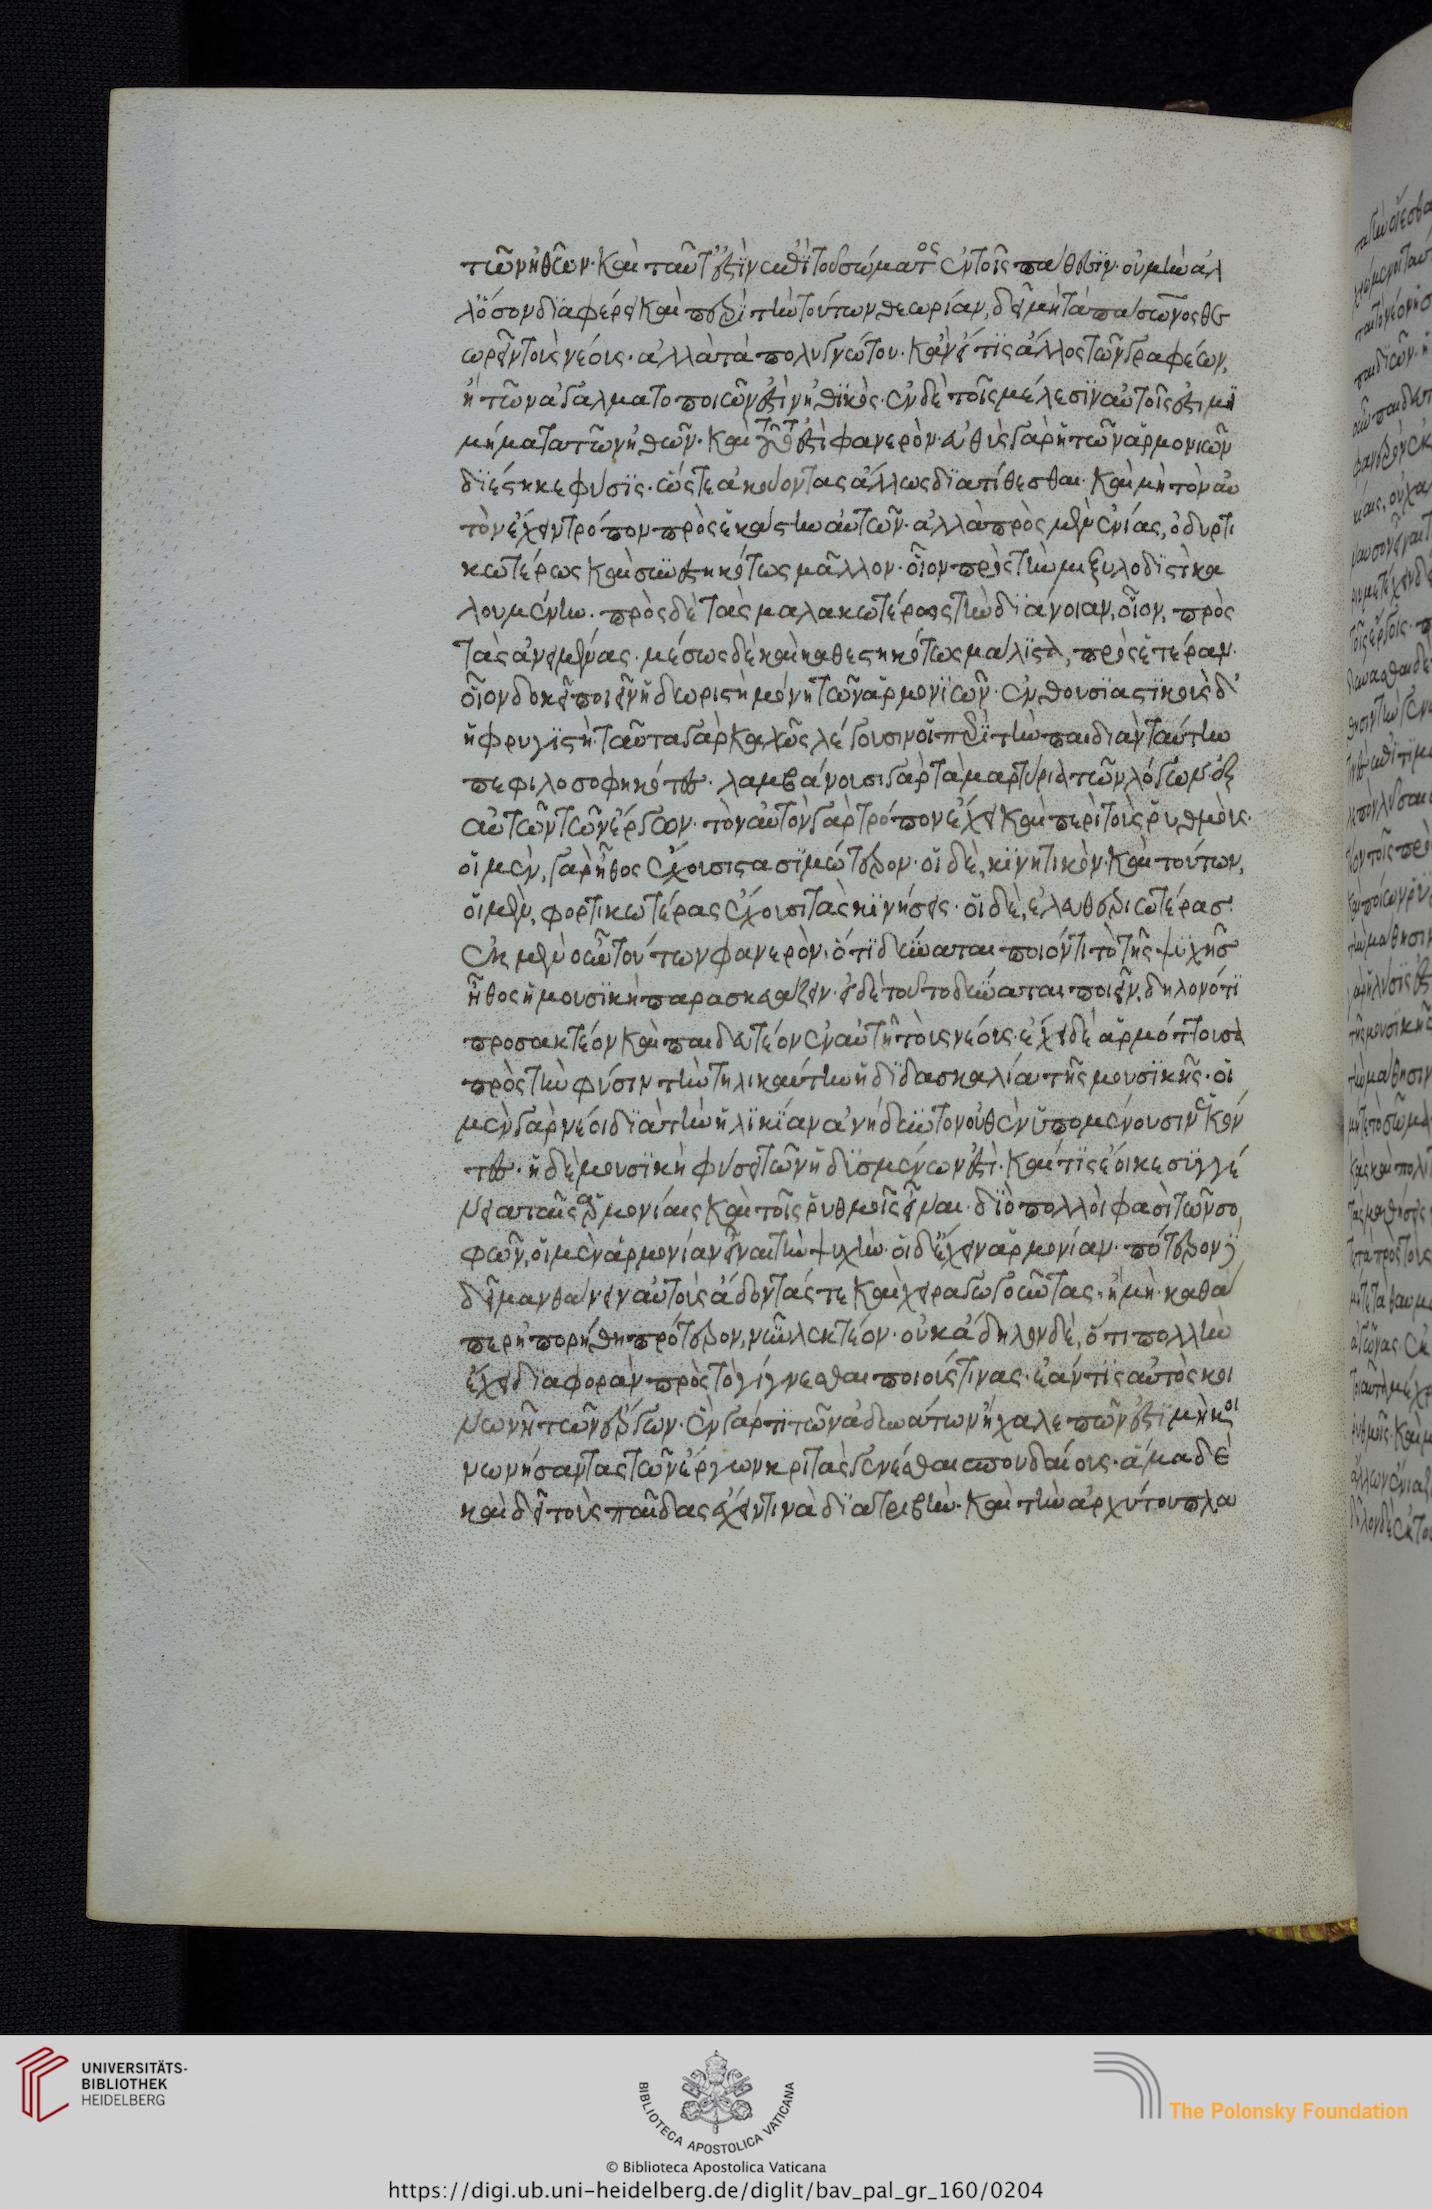 τῶν ἠθῶν· καὶ ταῦτ' ἐστὶν ἐπὶ τοῦ σώματος ἐν τοῖς πάθεσιν· οὐ μὴν ἀλ
λ' ὅσον διαφέρει καὶ περὶ τὴν τούτων θεωρίαν, δεῖ μὴ τὰ παύσωνος θε
ωρεῖν τοὺς νέοις· ἀλλὰ τὰ πολυγνώτου· κἂν εἴ τις ἄλλος τῶν γραφέων,
ἢ τῶν ἀγαλματοποιῶν ἐστὶν ἠθικός· ἐν δὲ τοῖς μέλεσιν αὐτοῖς ἐστι μι
μήματα τῶν ἠθῶν· καὶ τοῦτ' ἐστὶ φανερὸν· εὐθὺς γὰρ ἡ τῶν ἁρμονιῶν
διέστηκε φύσις· ὥστε ἀκούοντας ἄλλως διατίθεσθαι· καὶ μὴ τὸν αὐ
τὸν ἔχειν τρόπον πρὸς ἑκάστην αὐτῶν· ἀλλὰ πρὸς μὲν ἐνίας, ὀδυρτι
κωτέρως καὶ συνεστηκότως μᾶλλον· οἷον πρὸς τὴν μιξυλοδιστὶ κα
λουμένην· πρὸς δὲ τὰς μαλακωτέρως τὴν διάνοιαν, οἷον, πρὸς
τὰς ἀνειμένας· μέσως δὲ καὶ καθεστηκότως μάλιστα, πρὸς ἑτέραν·
οἷον δοκεῖ ποιεῖν ἡ δωριστὴ μόνη τῶν ἁρμονιῶν· ἐνθουσιαστικοὺς δ'
ἡ φρυγιστὴ· ταῦτα γὰρ καλῶς λέγουσιν οἱ περὶ τὴν παιδιὰν ταύτην
πεφιλοσοφηκότες· λαμβάνουσι γὰρ τὰ μαρτύρια τῶν λόγων ἐξ
αὐτῶν τῶν ἔργων· τὸν αὐτὸν γὰρ τρόπον ἔχει καὶ περὶ τοὺς ῥυθμοὺς·
οἱ μὲν, γὰρ ἦθος ἔχουσι στασιμώτερον· οἱ δὲ, κινητικὸν· καὶ τούτων,
οἱ μὲν, φορτικωτέρας ἔχουσι τὰς κινήσεις· οἱ δὲ, ἐλευθεριωτέρας·
ἐκ μὲν οὖν τούτων φανερὸν, ὅτι δύναται ποιόν τι τὸ τῆς ψυχῆς
ἦθος ἡ μουσικὴ παρασκευάζειν· εἰ δὲ τοῦτο δύναται ποιεῖν, δηλονότι
προσακτέον καὶ παιδευτέον ἐν αὐτῇ τοὺς νέοις· ἔχει δὲ ἁρμόττουσα
πρὸς τὴν φύσιν τὴν τηλικαύτην ἡ διδασκαλία τῆς μουσικῆς· οἱ
μὲν γὰρ νέοι διὰ τὴν ἡλικίαν ἀνήδυντον οὐθὲν ὑπομένουσιν ἑκόν
τες· ἡ δὲ μουσικὴ φύσει τῶν ἡδισμένων ἐστὶ· καί τις ἔοικε συγγέ
νεια ταῖς ἁρμονίαις καὶ τοῖς ῥυθμοῖς εἶναι· διὸ πολλοὶ φασὶ τῶν σο
φῶν, οἱ μὲν ἁρμονίαν εἶναι τὴν ψυχὴν· οἱ δ' ἔχειν ἁρμονίαν· πότερον
δεῖ μανθάνειν αὐτοὺς ἄδοντάς τε καὶ χειραγωγοῦντας, ἢ μὴ· καθά
περ ἠπορήθη πρότερον, νῦν λεκτέον· οὐκ ἄδηλον δὲ, ὅτι πολλὴν
ἔχει διαφορὰν πρὸς τὸ γίγνεσθαι ποιούς τινας· ἐάν τις αὐτὸς κοι
νωνῇ τῶν ἔργων· ἓν γάρ τι τῶν ἀδυνάτων ἢ χαλεπῶν ἐστι μὴ κοι
νωνήσαντας τῶν ἔργων κριτὰς γενέσθαι σπουδαίοις· ἅμα δὲ
καὶ δεῖ τοὺς παῖδας ἔχειν τινὰ διατριβὴν· καὶ τὴν ἀρχύτου πλα
UNIVERSITÄTS-
BIBLIOTHEK
HEIDELBERG
BIBLIOTECA APOSTOLICA VATICANA
The Polonsky Foundation
© Biblioteca Apostolica Vaticana
https://digi.ub.uni-heidelberg.de/diglit/bav_pal_gr_160/0204